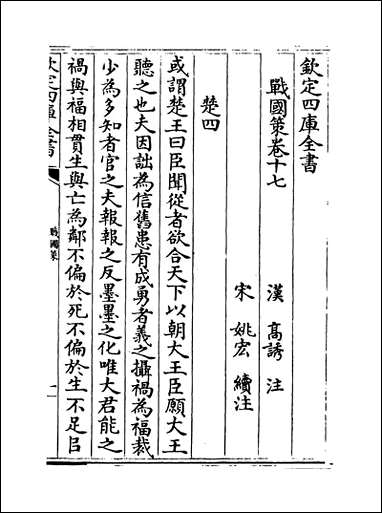 欽定四庫全書
戰國策卷十七
漢 高誘 注
宋 姚宏 續注
楚四
或謂楚王曰臣聞從者欲合天下以朝大王臣願大王
聽之也夫因詘為信舊患有成勇者義之攝禍為福裁
少為多知者官之夫報報之反墨墨之化唯大君能之
禍與福相貫生與亡為鄰不偏於死不偏於生不足㠯
欽定四庫全書
戰國策
一